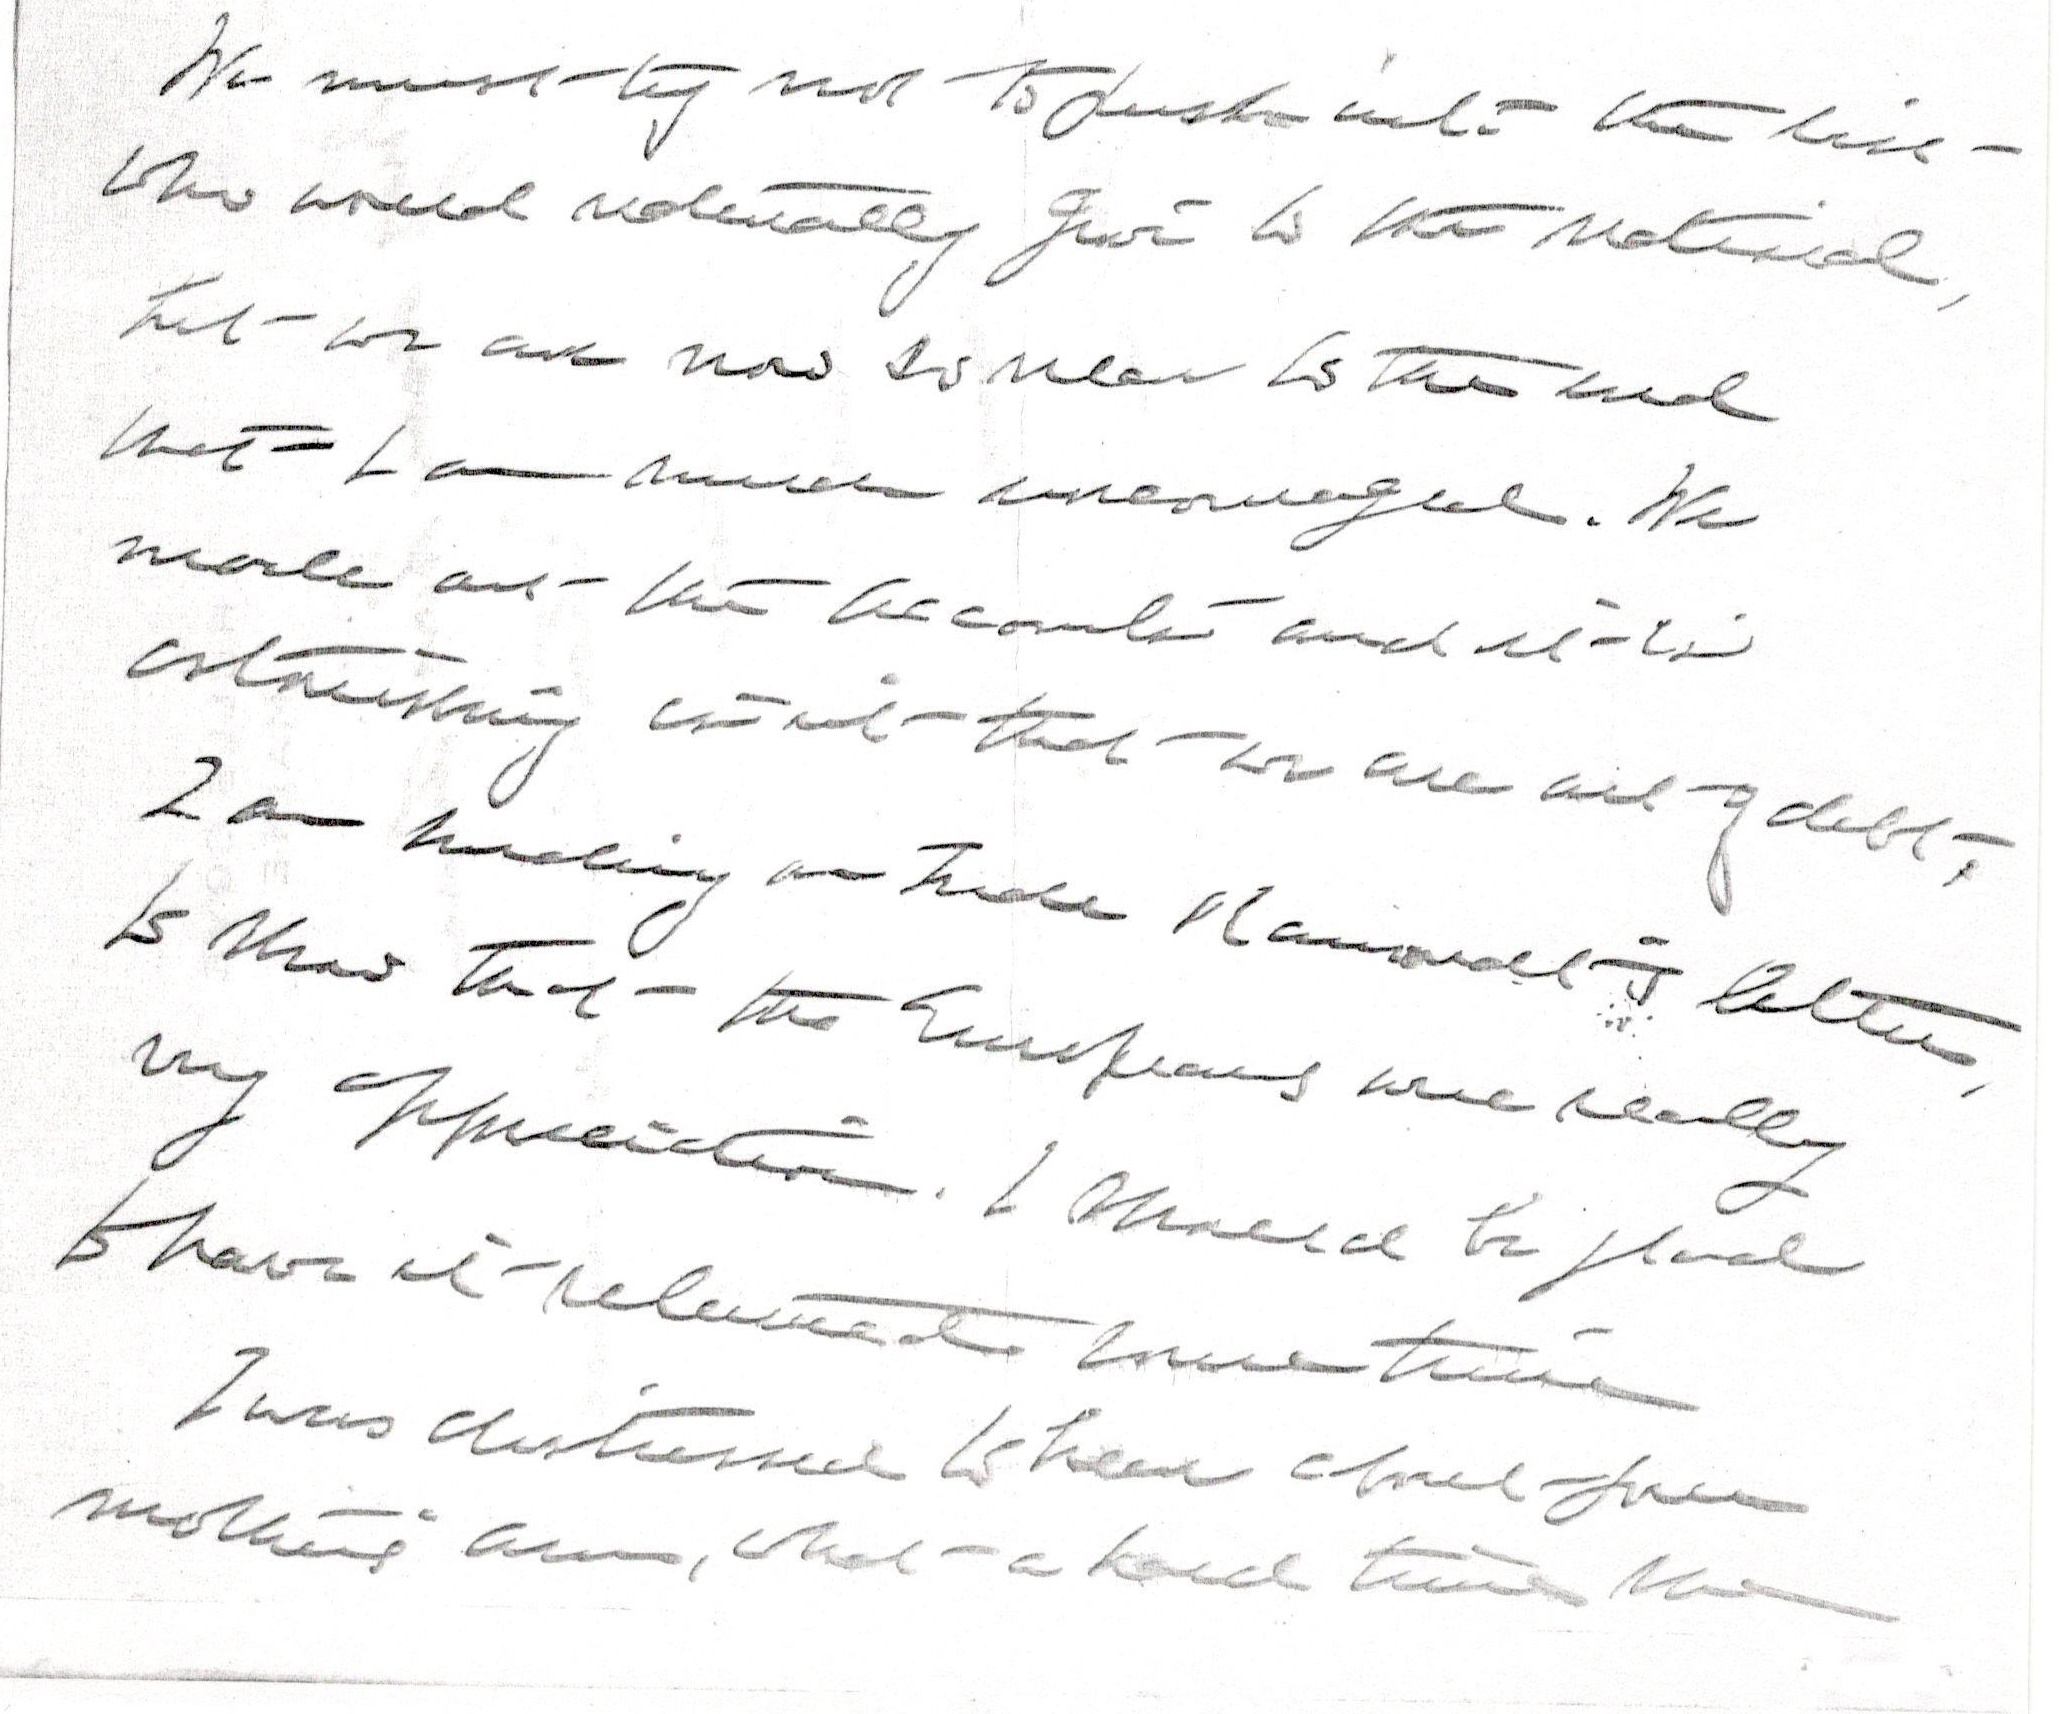 We must try not to push into the lists
who would naturally give to the National,
but we are now so near to the end
that I am much encouraged. We
made out the accounts and it is
astonishing isn't it that we are out of debt.
I am sending on Trude letter,
to show that the Europeans were really
very appreciative. I should be glad
to have it returned some time
I was distressed to hear about your
mother's arm, what a hard time she